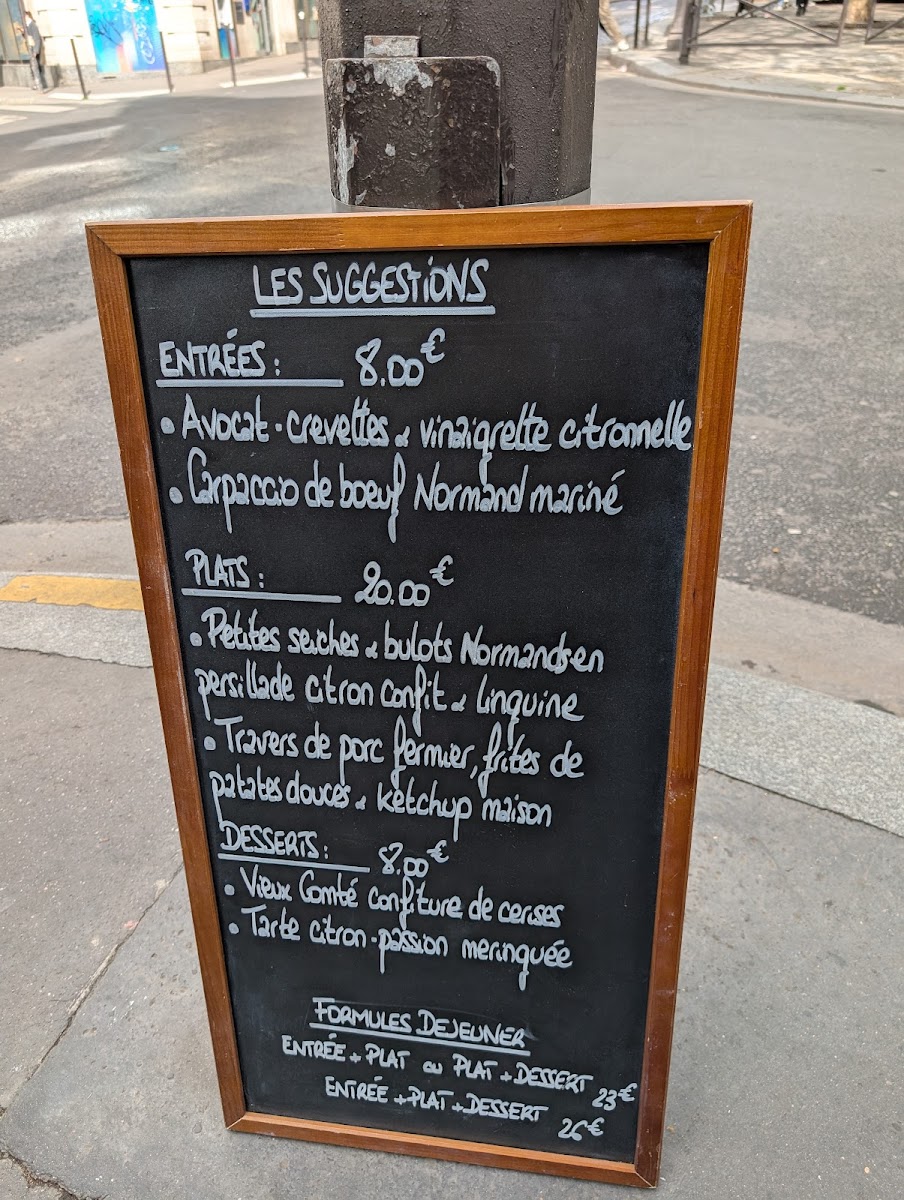 LES SUGGESTIONS
ENTRÉES : 8.00€
• Avocat - crevettes & vinaigrette citronnelle
• Carpaccio de boeuf Normand mariné
PLATS : 20.00€
• Petites seiches & bulots Normands en
persillade citron confit & linguine
• Travers de porc fermier, frites de
patates douces & ketchup maison
DESSERTS : 8.00€
• Vieux Comté confiture de cerises
• Tarte citron-passion meringuée
FORMULES DEJEUNER
ENTRÉE + PLAT ou PLAT + DESSERT 23€
ENTRÉE + PLAT + DESSERT 26€